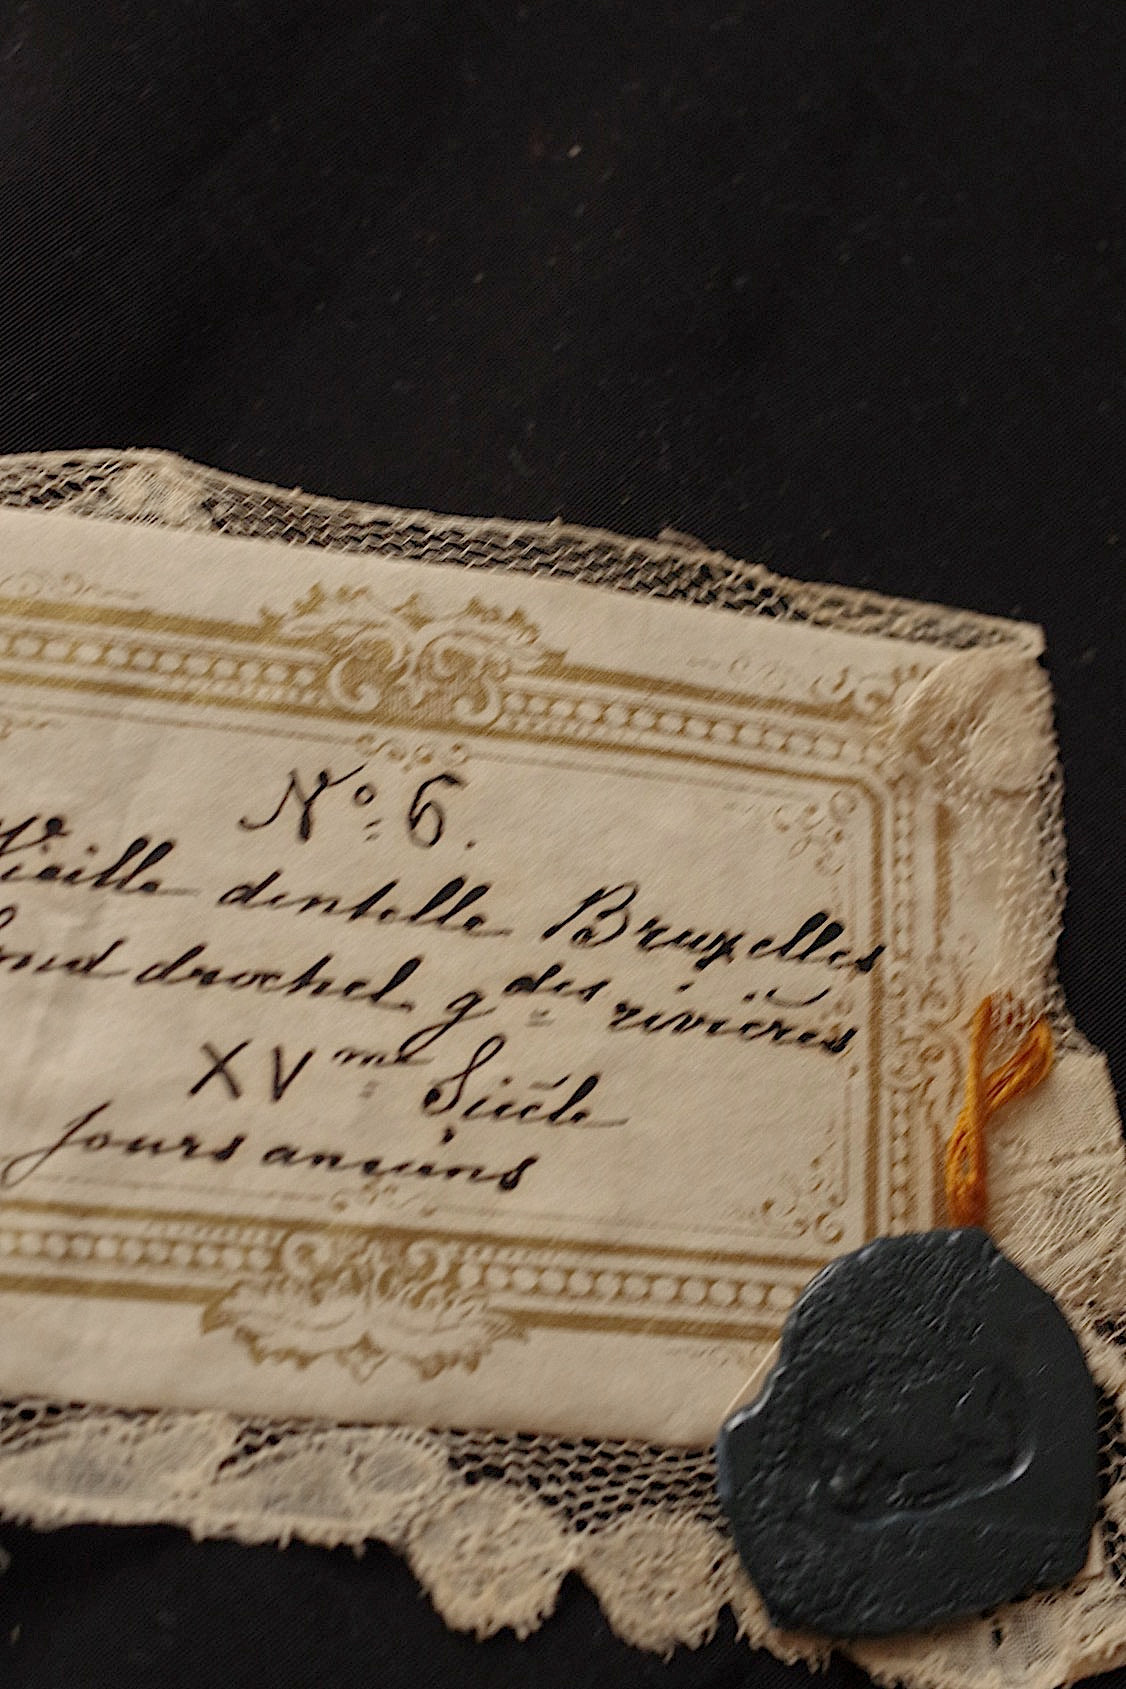 Nº 6.
Vieille dentelle Bruxelles
fond drochel gdes rivières
XVme Siècle
Jours anciens